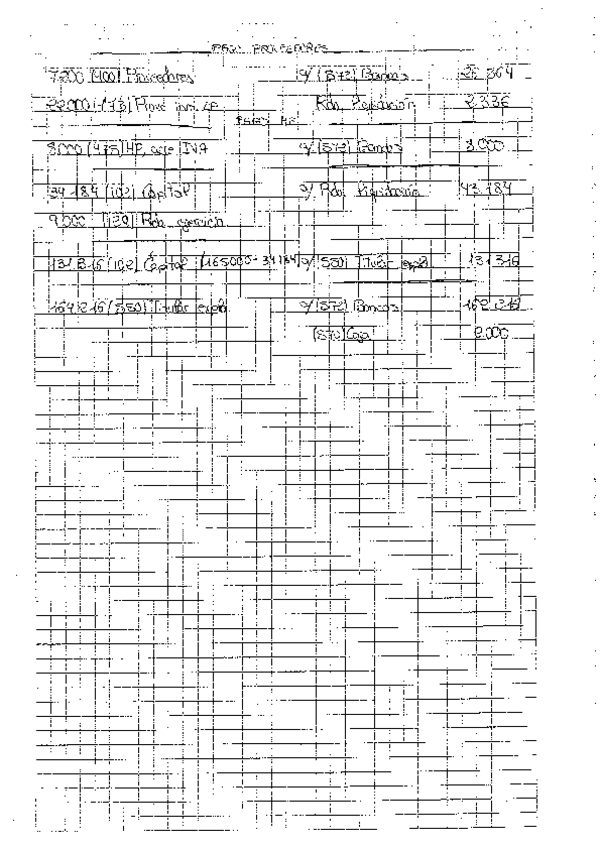 PAGO PROVEEDORES
7.200 (400) Proveedores a/ (572) Bancos 26.864
22.000 (173) Prove inm. LP Rdo. liquidación 2.336
PAGO HP
8.000 (475) HP, acre IVA a/ (572) Bancos 8.000
34.184 (102) Capital a/ Rdo. liquidación 43.184
9.000 (129) Rdo. ejercicio
131.316 (102) Capital (165000 - 34184) a/ (550) Titular expl. 131.316
(550) Titular expl. a/ (572) Bancos
(570) Caja 2.000